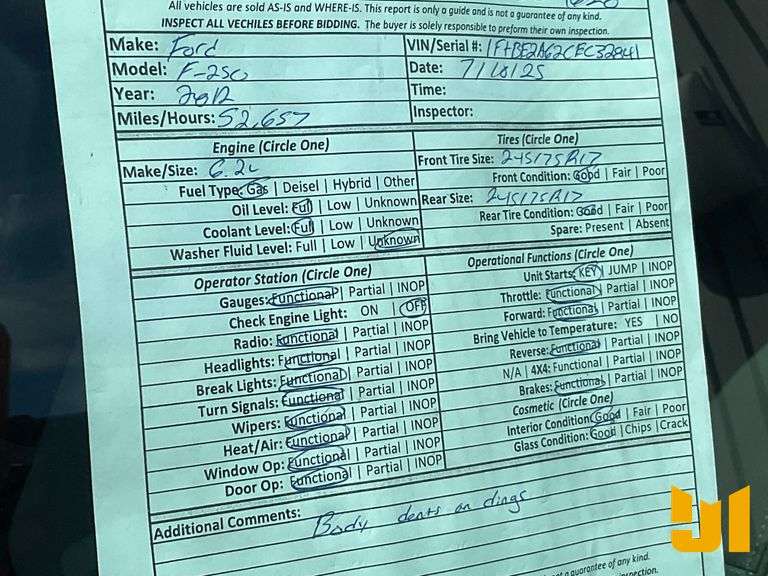 All vehicles are sold AS-IS and WHERE-IS. This report is only a guide and is not a guarantee of any kind.
INSPECT ALL VECHILES BEFORE BIDDING. The buyer is solely responsible to preform their own inspection.
Make: Ford
VIN/Serial #: 1FTBF2A62CEC32841
Model: F-250
Date: 7/10/25
Year: 2012
Time:
Miles/Hours: 52,657
Inspector:
Engine (Circle One)
Tires (Circle One)
Make/Size: 6.2L
Front Tire Size: 245/75R17
Fuel Type: Gas | Deisel | Hybrid | Other
Front Condition: Good | Fair | Poor
Oil Level: Full | Low | Unknown
Rear Size: 245/75R17
Coolant Level: Full | Low | Unknown
Rear Tire Condition: Good | Fair | Poor
Washer Fluid Level: Full | Low | Unknown
Spare: Present | Absent
Operator Station (Circle One)
Operational Functions (Circle One)
Gauges: Functional | Partial | INOP
Unit Starts: KEY | JUMP | INOP
Check Engine Light: ON | OFF
Throttle: Functional | Partial | INOP
Radio: Functional | Partial | INOP
Forward: Functional | Partial | INOP
Headlights: Functional | Partial | INOP
Bring Vehicle to Temperature: YES | NO
Break Lights: Functional | Partial | INOP
Reverse: Functional | Partial | INOP
Turn Signals: Functional | Partial | INOP
N/A | 4X4: Functional | Partial | INOP
Wipers: Functional | Partial | INOP
Brakes: Functional | Partial | INOP
Heat/Air: Functional | Partial | INOP
Cosmetic (Circle One)
Window Op: Functional | Partial | INOP
Interior Condition: Good | Fair | Poor
Door Op: Functional | Partial | INOP
Glass Condition: Good | Chips | Crack
Additional Comments: Body dents an dings
not a guarantee of any kind.
inspection.